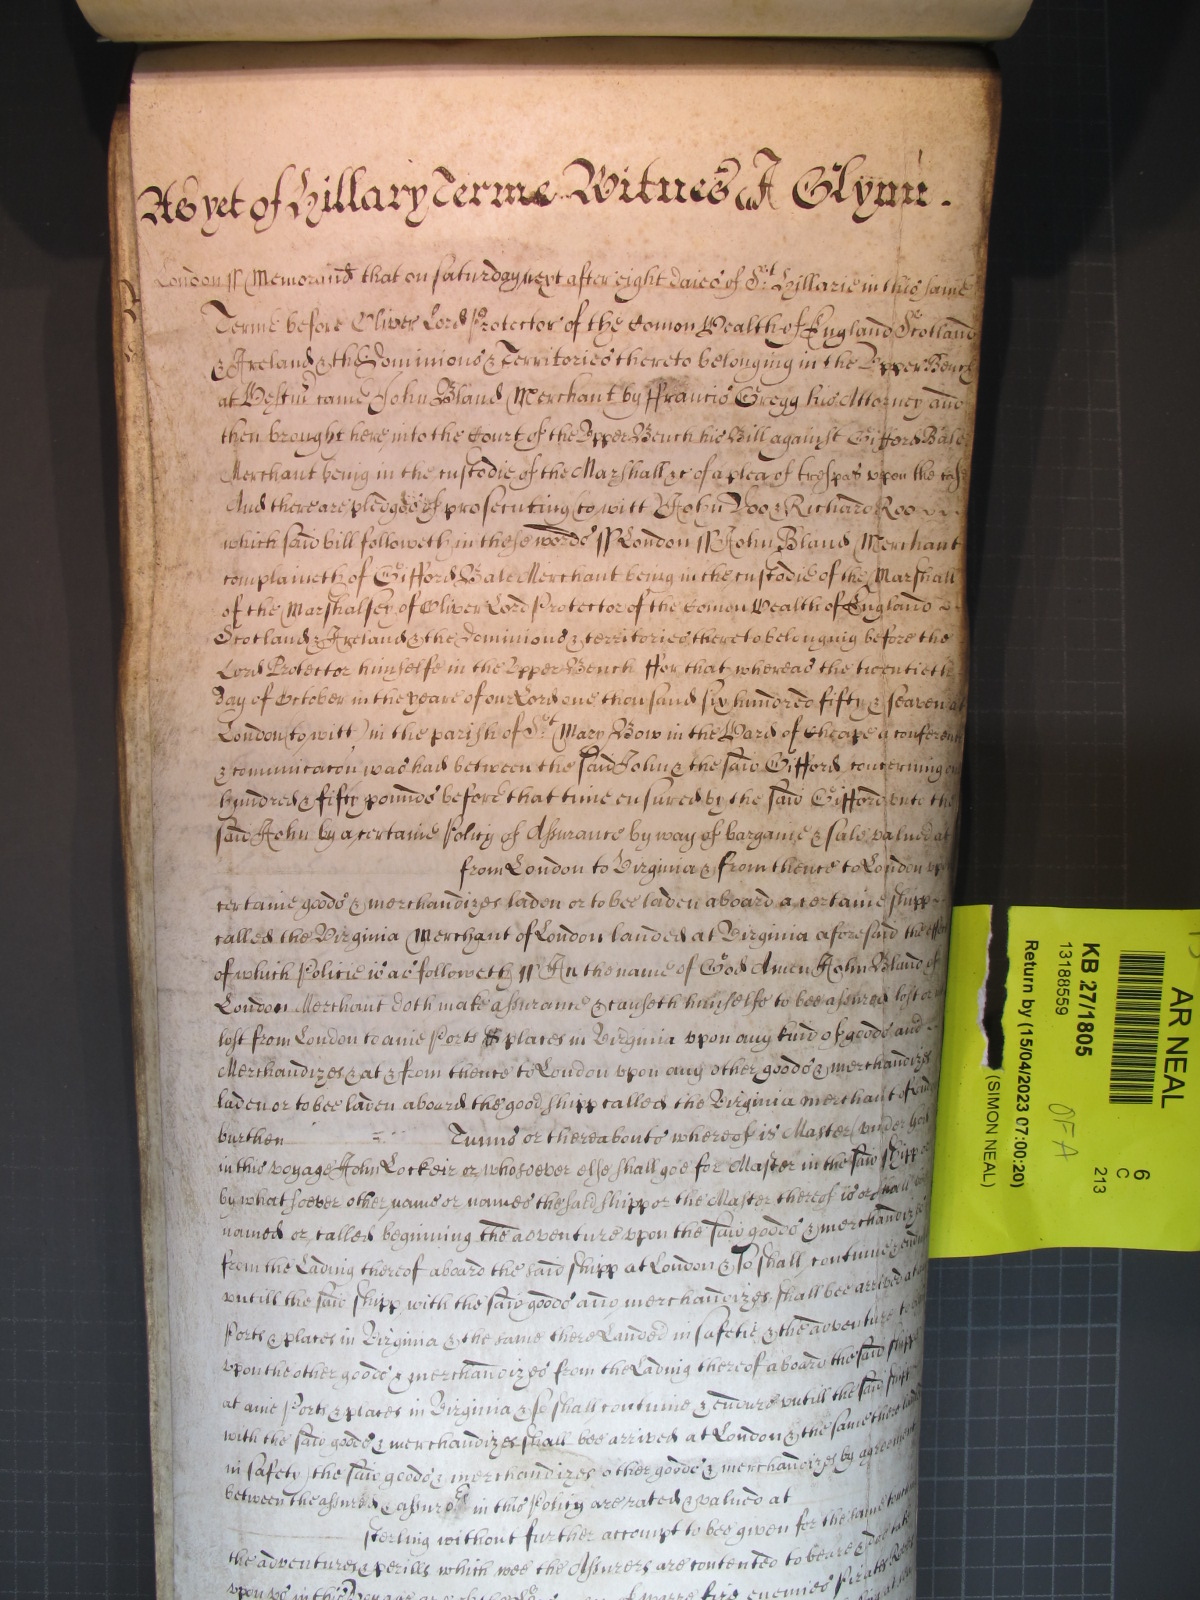 As yet of Hillary Terme Witnes J Glynn.
London ss Memorand that on Saturday next after eight daies of St Hillarie in this same
Terme before Oliver Lord Protector of the Comon Wealth of England Scotland
& Ireland & the Dominions & Territories thereto belonging in the Upper Bench
at Westm came John Bland Merchant by Ffrancis Gregg his Attorney and
then brought here into the Court of the Upper Bench his Bill against Gifford Bale
Merchant being in the custodie of the Marshall &c of a plea of trespas upon the case
And there are pledges of prosecuting to witt John Doo & Richard Roo
which said bill followeth in these words ss London ss John Bland Merchant
complaineth of Gifford Bale Merchant being in the custodie of the Marshall
of the Marshalsey of Oliver Lord Protector of the Comon Wealth of England
Scotland & Ireland & the Dominions & territories thereto belonging before the
Lord Protector himselfe in the Upper Bench ffor that whereas the twentieth
day of October in the yeare of our Lord one thousand six hundred fifty & seaven at
London (to witt) in the parish of St Mary Bow in the Ward of Cheape a conference
& communicacon was had between the said John & the said Gifford concerning
hundred & fifty pounds before that time ensured by the said Gifford unto the
said John by a certaine Policy of Assurance by way of bargaine & sale valued at
from London to Virginia & from thence to London
certaine goods & merchandizes laden or to bee laden aboard a certaine shipp
called the Virginia Merchant of London landed at Virginia aforesaid the
of which Policie is as followeth ss In the name of God Amen John Bland of
London Merchant doth make assurance & causeth himselfe to bee assured lost or
lost from London to anie Ports & places in Virginia upon any kind of goods and
Merchandizes & at & from thence to London upon any other goods & merchandizes
laden or to bee laden aboard the good shipp called the Virginia merchant of
burthen Tunns or thereabouts whereof is Master under God
in this voyage John Lockeir or whosoever else shall goe for Master in the said shipp or
by what soever other name or names the said shipp or the Master thereof is or shall
named or called beginning the adventure upon the said goods & merchandizes
from the Lading thereof aboard the said shipp at London & so shall continue &
untill the said shipp with the said goods and merchandizes shall bee arrived at
Ports & places in Virginia & the same there Landed in safetie & the adventure
upon the other goods & merchandizes from the Lading thereof aboard the said shipp
at anie Ports & places in Virginia & so shall continue & endure untill the said shipp
with the said goods & merchandizes shall bee arrived at London & the same there
in safety the said goods & merchandizes other goods & merchandizes by agreement
between the assured & assurors in this Policy are rated & valued at
sterling without further accompt to bee given for the same
the adventures & perills which wee the Assurers are contented to beare & doe take
upon us in this voyage enemies Pirates
AR NEAL
6
C
213
KB 27/1805
13188559
OFA
Return by (15/04/2023 07:00:20)
(SIMON NEAL)